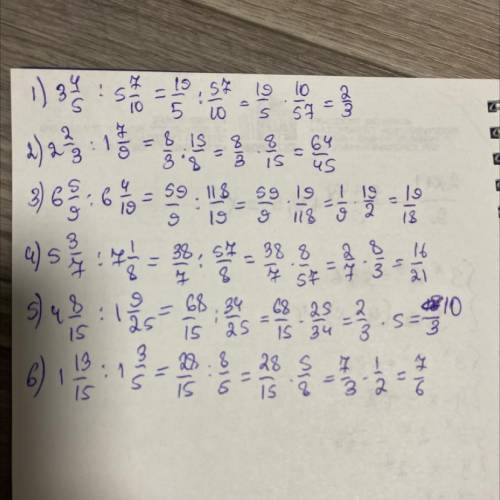 1) 3 4/5 : 5 7/10 = 19/5 : 57/10 = 19/5 · 10/57 = 2/3
2) 2 2/3 : 1 7/9 = 8/3 : 15/8 = 8/3 · 8/15 = 64/45
3) 6 5/9 : 6 4/19 = 59/9 : 118/19 = 59/9 · 19/118 = 1/9 · 19/2 = 19/18
4) 5 3/7 : 7 1/8 = 38/7 : 57/8 = 38/7 · 8/57 = 2/7 · 8/3 = 16/21
5) 4 8/15 : 1 9/25 = 68/15 : 34/25 = 68/15 · 25/34 = 2/3 · 5 = 10/3
6) 1 13/15 : 1 3/5 = 28/15 : 8/5 = 28/15 · 5/8 = 7/3 · 1/2 = 7/6